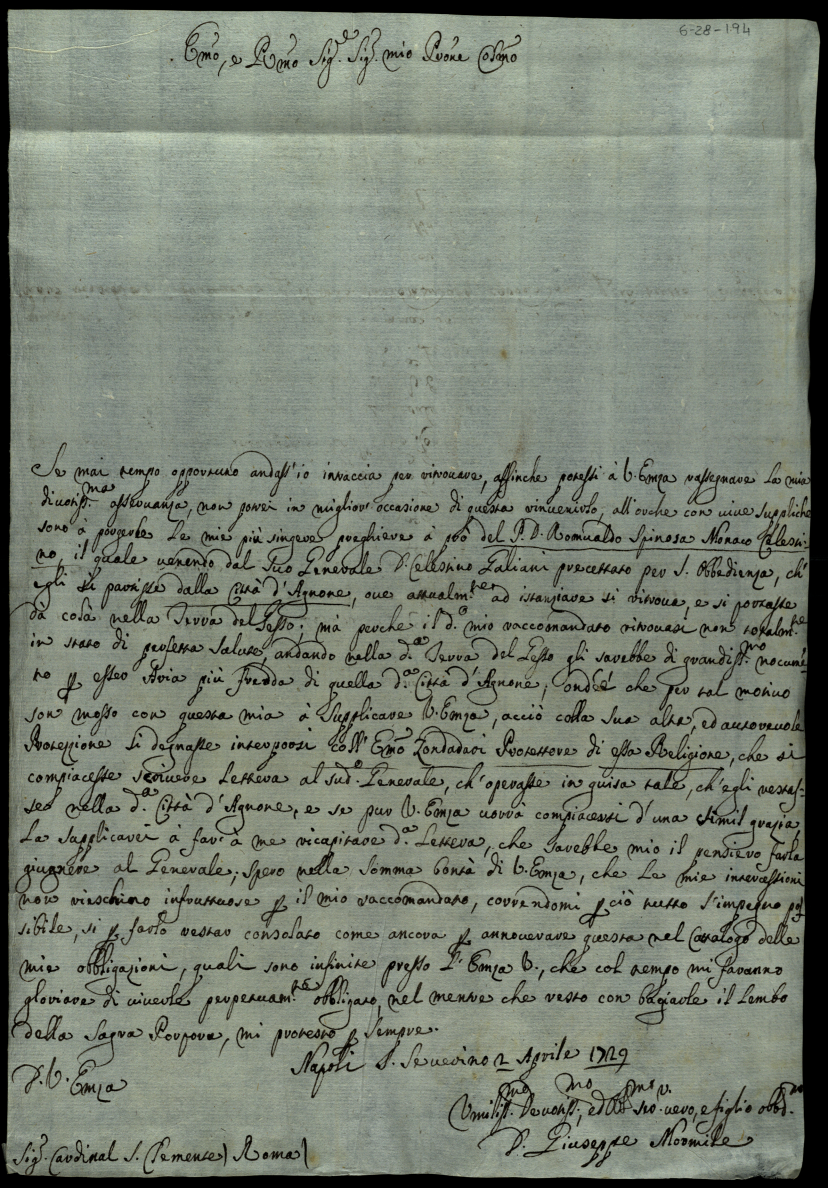 6-28-194
Emo, e Rmo Sig.r Sig.r mio Prone Colmo
Se mai tempo opportuno andass'io intraccia per ritrouare, affinche potessi à V. Emza rassegnare la mia
diuotiss.ma osseruanza, non potrei in miglior' occasione di questa rinuenirlo, all'orche con viue suppliche
sono à porgerle le mie più sincere preghiere à prò del P. D. Romualdo Spinosa Monaco Celesti-
no, il quale uenendo dal suo Generale D. Celestino Galiani precettato per S. Obbedienza, ch'
egli si partisse dalla Città d'Agnone, oue attualm.te ad istanziare si ritroua, e si portasse
dà colà nella Terra del Gesso; mà perche il d.o mio raccomandato ritrouasi non totalm.te
in stato di perfetta salute, andando nella d.a Terra del Gesso gli sarebbe di grandiss.mo nocume-
to p esser Aria più fredda di quella d.a Città d'Agnone, ond'è che per tal motiuo
son mosso con questa mia à supplicare V. Emza, acciò colla sua alta, ed autoreuole
Protezzione si degnasse interporsi coll' Emo Zondadari Protettore di essa Religione, che si
compiacesse scriuere lettera al sud.o Generale, ch'operasse in guisa tale, ch'egli restas-
se nella d.a Città d'Agnone, e se pur V. Emza uorrà compiacersi d'una simil grazia,
la supplicarei à far' à me ricapitare d.a lettera, che sarebbe mio il pensiero farla
giugnere al Generale; spero nella somma bontà di V. Emza, che le mie intercessioni
non rieschino infruttuose p il mio raccomandato, correndomi p ciò tutto l'impegno pos
sibile, si p farlo restar consolato come ancora p annouerare questa nel Catalogo delle
mie obbligazioni, quali sono infinite presso l'Emza V., che col tempo mi faranno
gloriare di uiuerle perpetuam.te obbligato, nel mentre che resto con bagiarle il lembo
della Sagra Porpora, mi protesto p sempre.
Napoli S. Seuerino 2 Aprile 1729
D. V. Emza
Vmiliss.mo Deuotiss.mo, ed Obb.mo s.ro uero, e figlio obbd.mo
D. Giuseppe Mormile
Sig.r Cardinal S. Clemente) Roma)